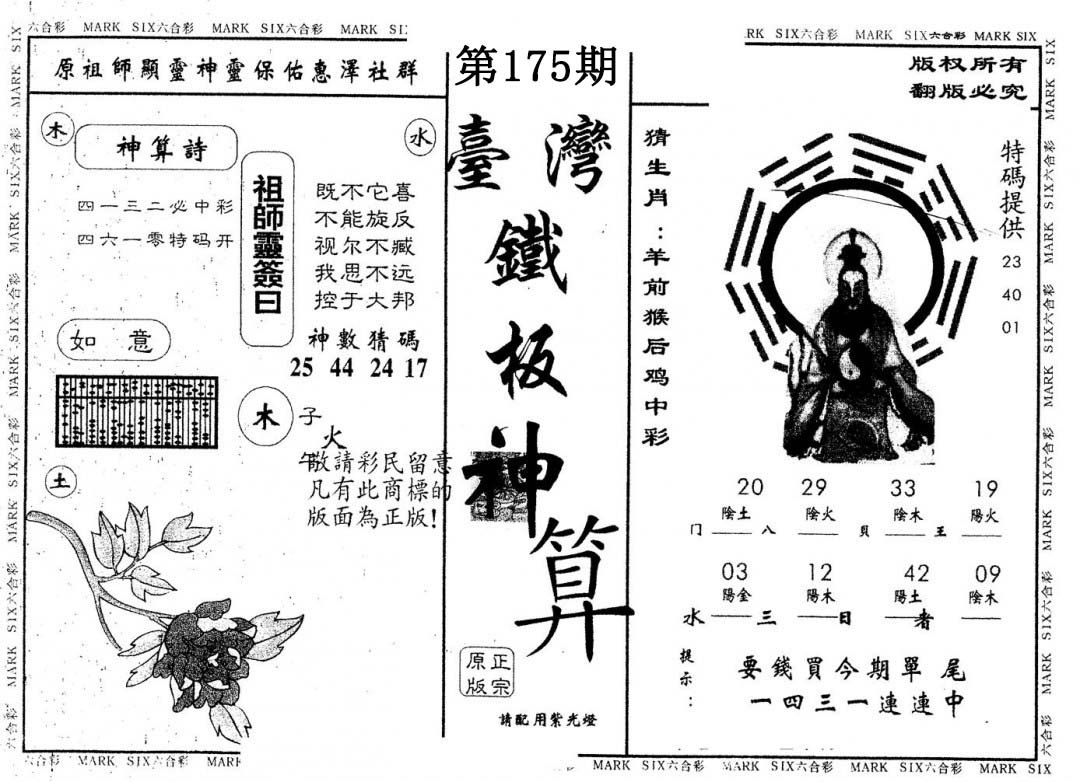 六合彩 MARK SIX六合彩 MARK SIX六合彩 MARK SI
RK SIX六合彩 MARK SIX六合彩 MARK SIX
原祖師顯靈神靈保佑惠澤社群
第175期
版权所有
翻版必究
木
神算詩
水
四一三二必中彩
四六一零特码开
祖師靈簽曰
既不它喜
不能旋反
视尔不臧
我思不远
控于大邦
神數猜碼
25 44 24 17
如意
木
子
火
午
敬請彩民留意
凡有此商標的
版面為正版!
土
臺灣
鐵
板
神
算
正宗
原版
請配用紫光燈
猜生肖:羊前猴后鸡中彩
特碼提供
23
40
01
20 29 33 19
陰土 陰火 陰木 陽火
门 八 貝 王
03 12 42 09
陽金 陽木 陽土 陰木
水 三 日 者
提示:
要錢買今期單尾
一四三一連連中
六合彩 MARK SIX六合彩 MARK
MARK SIX六合彩 MARK SIX六合彩 MARK SIX六合彩 MARK SIX